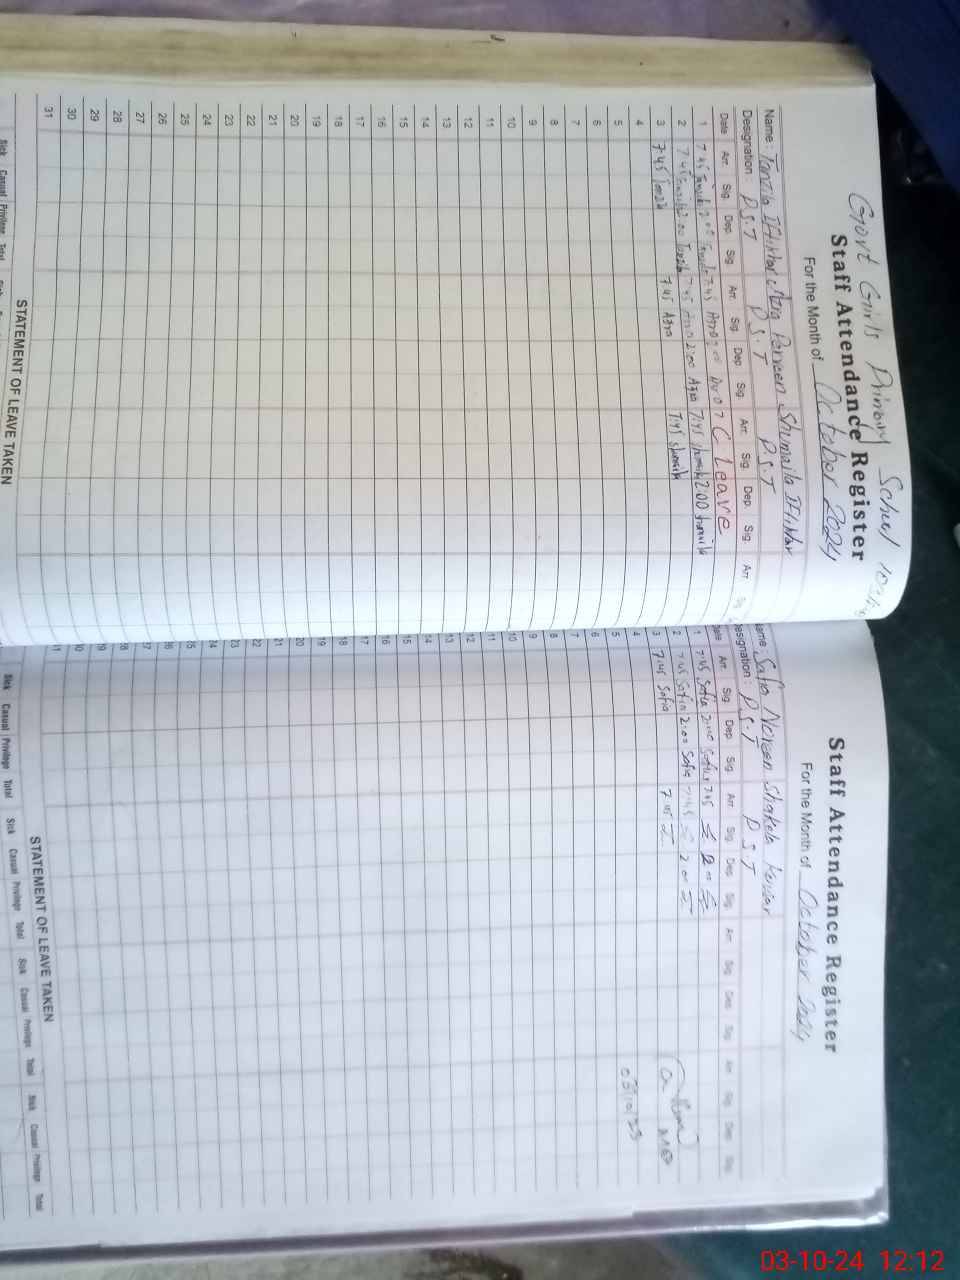 Govt Girls Primary School
Staff Attendance Register
For the Month of October 2024
Name: Tanzila Iftikhar Parveen Shumaila Iftikhar
Designation: P.S.T P.S.T P.S.T
Date Arr. Sig. Dep. Sig. Arr. Sig. Dep. Sig. Arr. Sig. Dep. Sig. Arr Sig
1 7:45 Tanzila 2:00 Tanzila 7:45 Azra C Leave
2 7:45 Tanzila 2:00 Tanzila 7:45 Azra 2:00 Azra 7:45 Shumaila 2:00 Shumaila
3 7:45 Tanzila 7:45 Azra 7:45 Shumaila
4
5
6
7
8
9
10
11
12
13
14
15
16
17
18
19
20
21
22
23
24
25
26
27
28
29
30
31
STATEMENT OF LEAVE TAKEN
Sick Casual Privilege Total
Staff Attendance Register
For the Month of October 2024
ame: Safia Noreen Shakela Kousar
esignation: P.S.T P.S.T
Date Arr. Sig. Dep Sig. Arr. Sig. Dep. Sig. Arr. Sig. Dep. Sig. Arr. Sig. Dep. Sig.
1 7:45 Safia 2:00 Safia 7:45
2 7:45 Safia 2:00 Safia 7:45 2:00
3 7:45 Safia 7:45
4
5
6
7
8
9
10
11
12
13
14
15
16
17
18
19
20
21
22
23
24
25
26
27
28
29
30
31
STATEMENT OF LEAVE TAKEN
Sick Casual Privilege Total Sick Casual Privilege Total Sick Casual Privilege Total Sick Casual Privilege Total
03-10-24 12:12